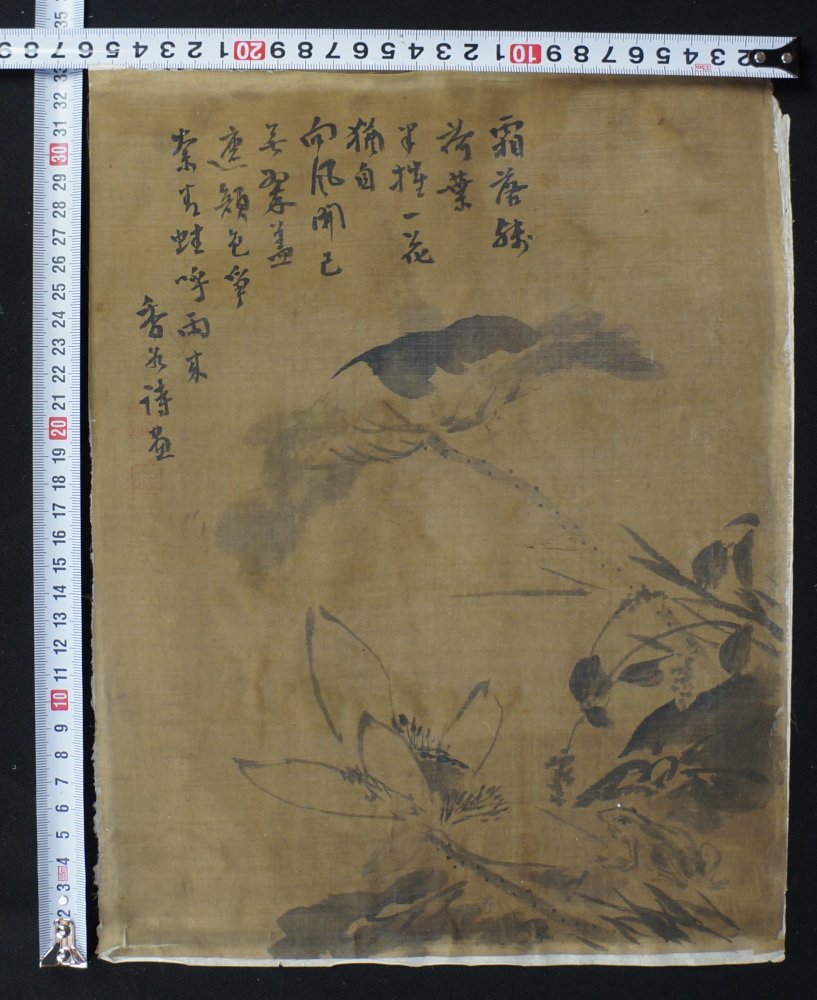 霜落殘
荷葉
半摧一花
猶自
向風開已
無翠蓋
遮顏色爭
奈青蛙呼雨來
香詩畫
2 3 4 5 6 7 8 9 10 1 2 3 4 5 6 7 8 9 20 1 2 3 4 5 6 7 8
2 3 4 5 6 7 8 9 10 11 12 13 14 15 16 17 18 19 20 21 22 23 24 25 26 27 28 29 30 31 32 33 35